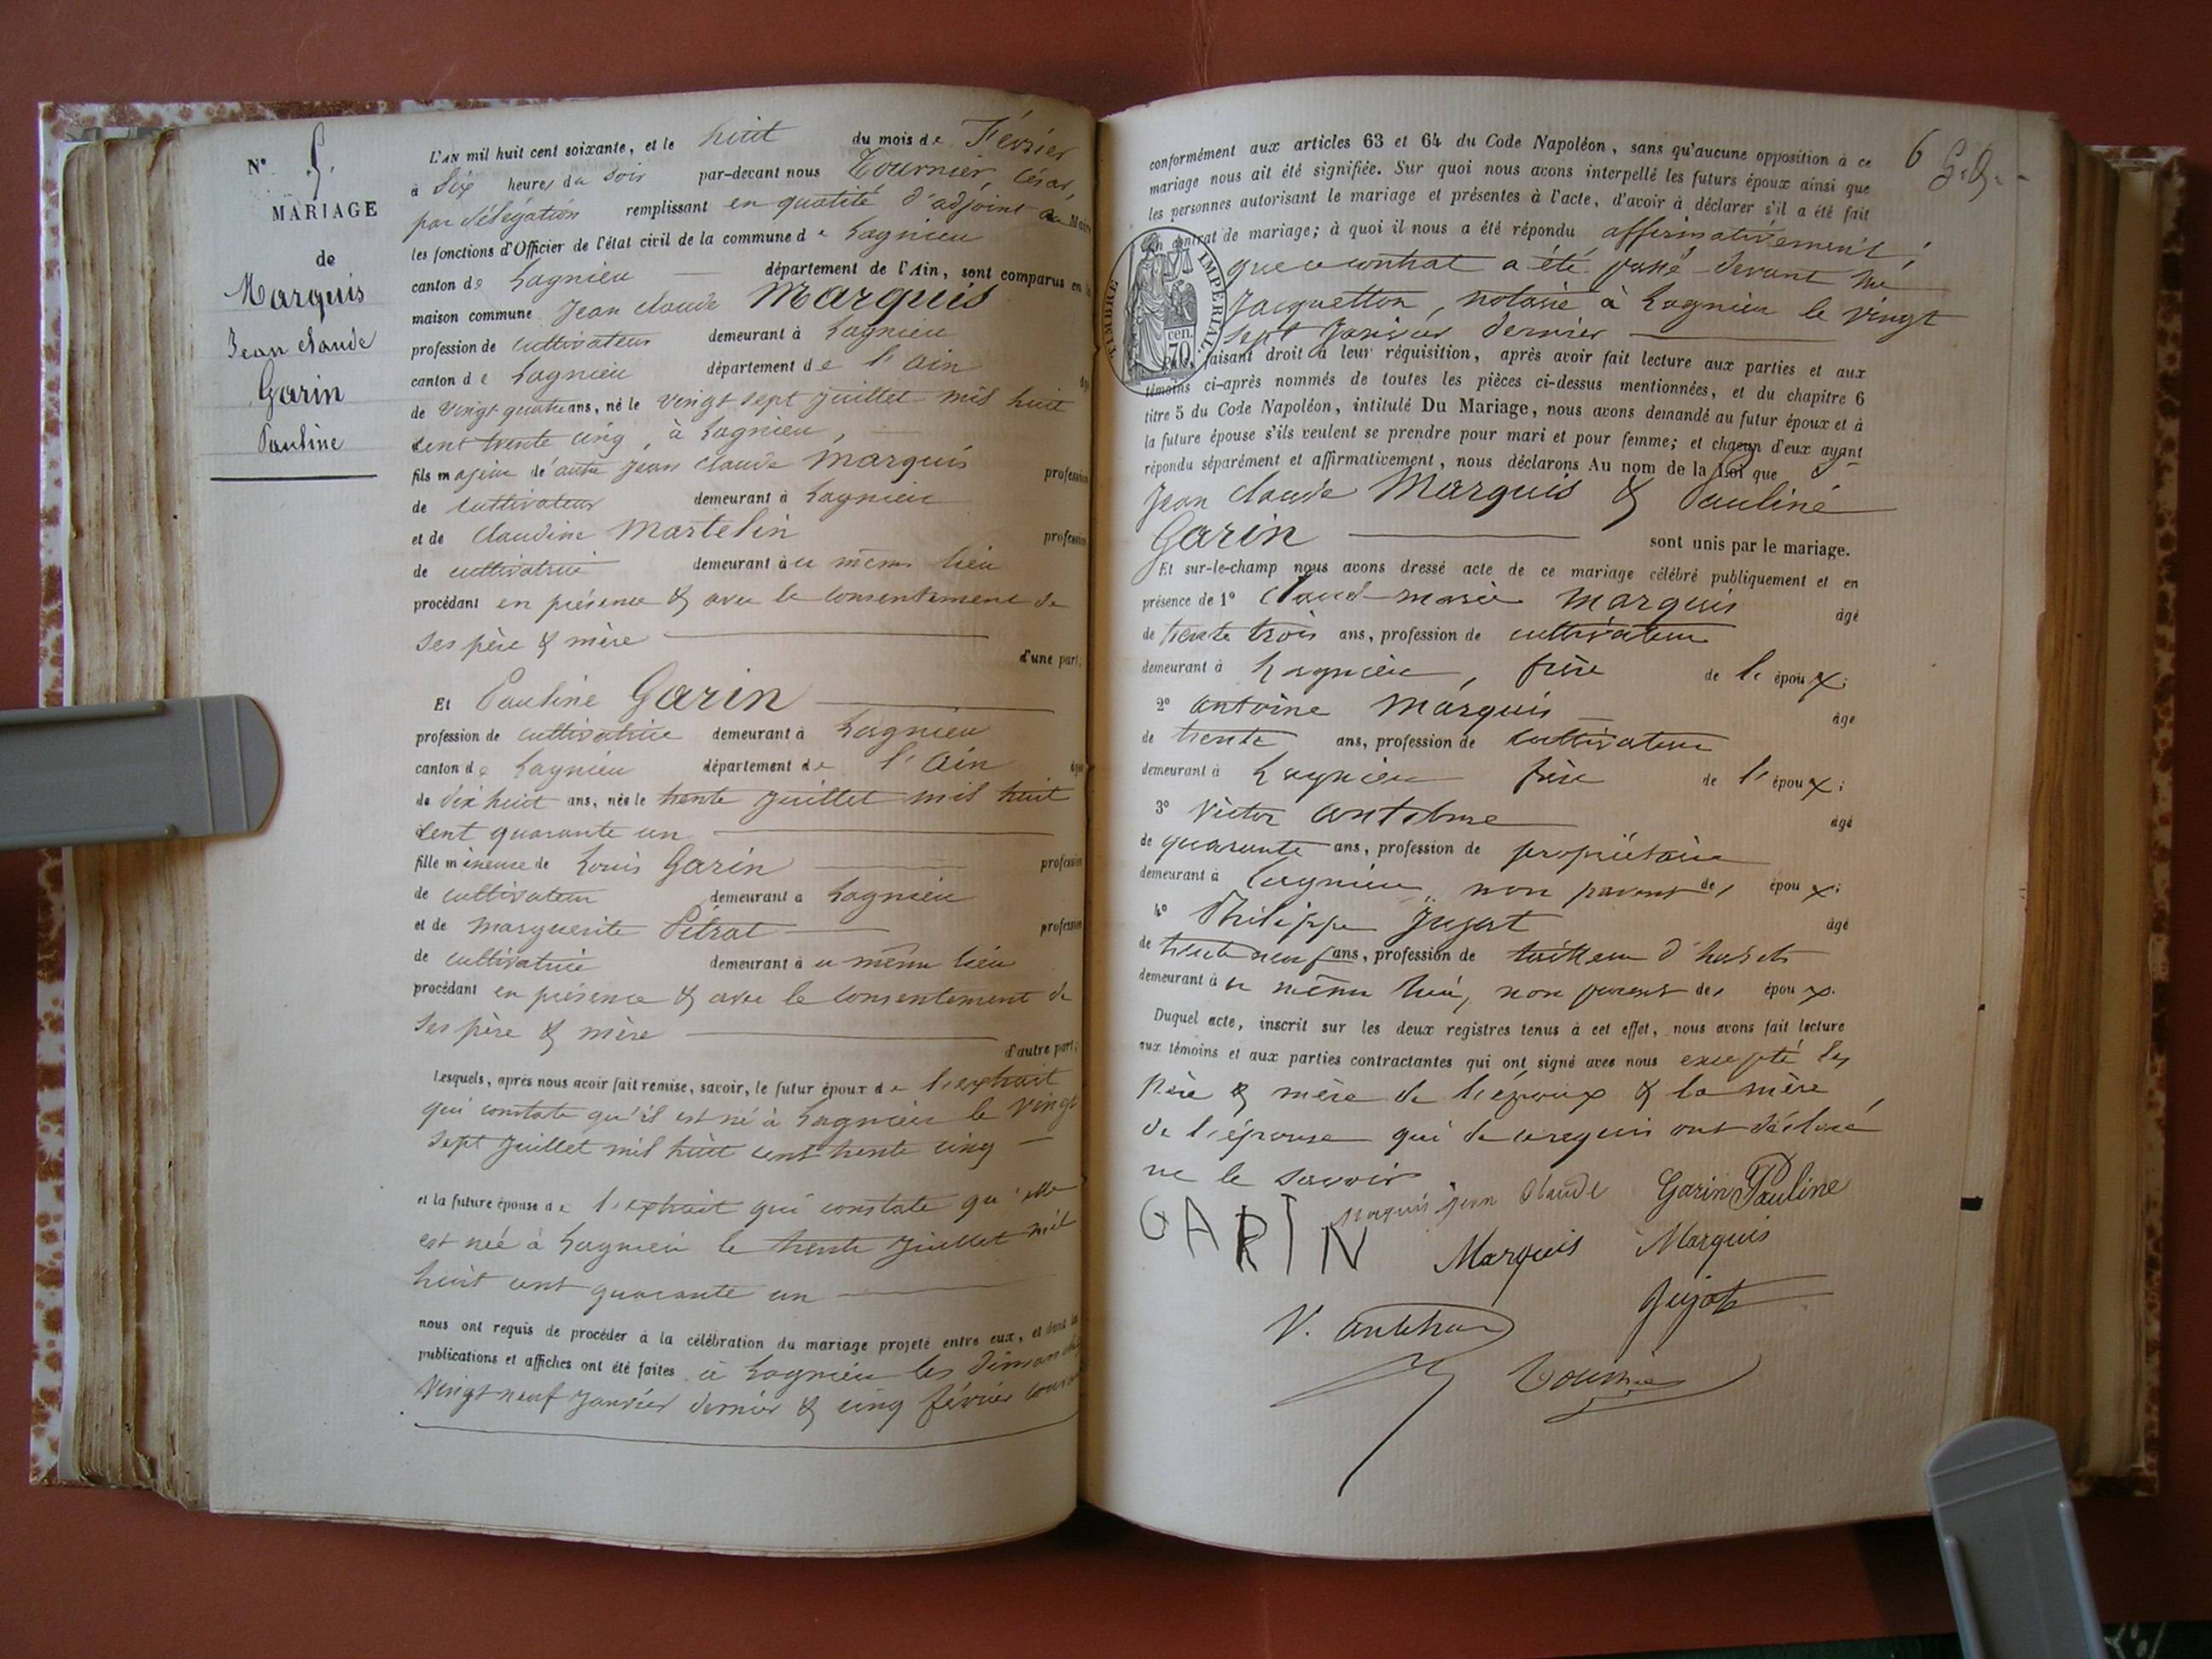 N° 5.
MARIAGE
de
Marquis
Jean Claude
Garin
Pauline
L'AN mil huit cent soixante, et le huit du mois de Février
à Six heures du Soir par-devant nous Tournier, César,
par délégation remplissant en qualité d'adjoint au Maire
les fonctions d'Officier de l'état civil de la commune de Lagnieu
canton de Lagnieu département de l'Ain, sont comparus en la
maison commune Jean Claude Marquis
profession de cultivateur demeurant à Lagnieu
canton de Lagnieu département de l'Ain âgé
de vingt quatre ans, né le vingt sept juillet mil huit
cent trente cinq, à Lagnieu,
fils majeur de autre Jean Claude Marquis profession
de cultivateur demeurant à Lagnieu
et de Claudine Martelin profession
de cultivatrice demeurant à ce même lieu
procédant en présence & avec le consentement de
ses père & mère
d'une part;
Et Pauline Garin
profession de cultivatrice demeurant à Lagnieu
canton de Lagnieu département de l'Ain âgée
de dix huit ans, née le trente juillet mil huit
cent quarante un
fille mineure de Louis Garin profession
de cultivateur demeurant à Lagnieu
et de Marguerite Pétrat profession
de cultivatrice demeurant à ce même lieu
procédant en présence & avec le consentement de
ses père & mère
d'autre part;
Lesquels, après nous avoir fait remise, savoir, le futur époux de l'extrait
qui constate qu'il est né à Lagnieu le vingt
sept juillet mil huit cent trente cinq
et la future épouse de l'extrait qui constate qu'elle
est née à Lagnieu le trente juillet mil
huit cent quarante un
nous ont requis de procéder à la célébration du mariage projeté entre eux, et dont les
publications et affiches ont été faites à Lagnieu les dimanches
vingt neuf janvier dernier & cinq février courant
6
conformément aux articles 63 et 64 du Code Napoléon, sans qu'aucune opposition à ce
mariage nous ait été signifiée. Sur quoi nous avons interpellé les futurs époux ainsi que
les personnes autorisant le mariage et présentes à l'acte, d'avoir à déclarer s'il a été fait
un contrat de mariage; à quoi il nous a été répondu affirmativement;
que ce contrat a été passé devant Me
Jacquetton, notaire à Lagnieu le vingt
sept janvier dernier
TIMBRE IMPERIAL.
70 cen.
Puis, faisant droit à leur réquisition, après avoir fait lecture aux parties et aux
témoins ci-après nommés de toutes les pièces ci-dessus mentionnées, et du chapitre 6
titre 5 du Code Napoléon, intitulé Du Mariage, nous avons demandé au futur époux et à
la future épouse s'ils veulent se prendre pour mari et pour femme; et chacun d'eux ayant
répondu séparément et affirmativement, nous déclarons Au nom de la Loi que
Jean Claude Marquis & Pauline
Garin sont unis par le mariage.
Et sur-le-champ nous avons dressé acte de ce mariage célébré publiquement et en
présence de 1° Claude-Marie Marquis âgé
de trente trois ans, profession de cultivateur
demeurant à Lagnieu, frère de l'époux;
2° Antoine Marquis âgé
de trente ans, profession de cultivateur
demeurant à Lagnieu frère de l'époux;
3° Victor âgé
de quarante ans, profession de propriétaire
demeurant à Lagnieu, non parent des époux;
4° Philippe Jujat âgé
de trente neuf ans, profession de tailleur d'habits
demeurant à ce même lieu, non parent des époux.
Duquel acte, inscrit sur les deux registres tenus à cet effet, nous avons fait lecture
aux témoins et aux parties contractantes qui ont signé avec nous excepté les
père & mère de l'époux & la mère
de l'épouse qui de ce requis ont déclaré
ne le savoir
GARIN Marquis Jean Claude Garin Pauline
Marquis Marquis
Jujat
V.
Tournier